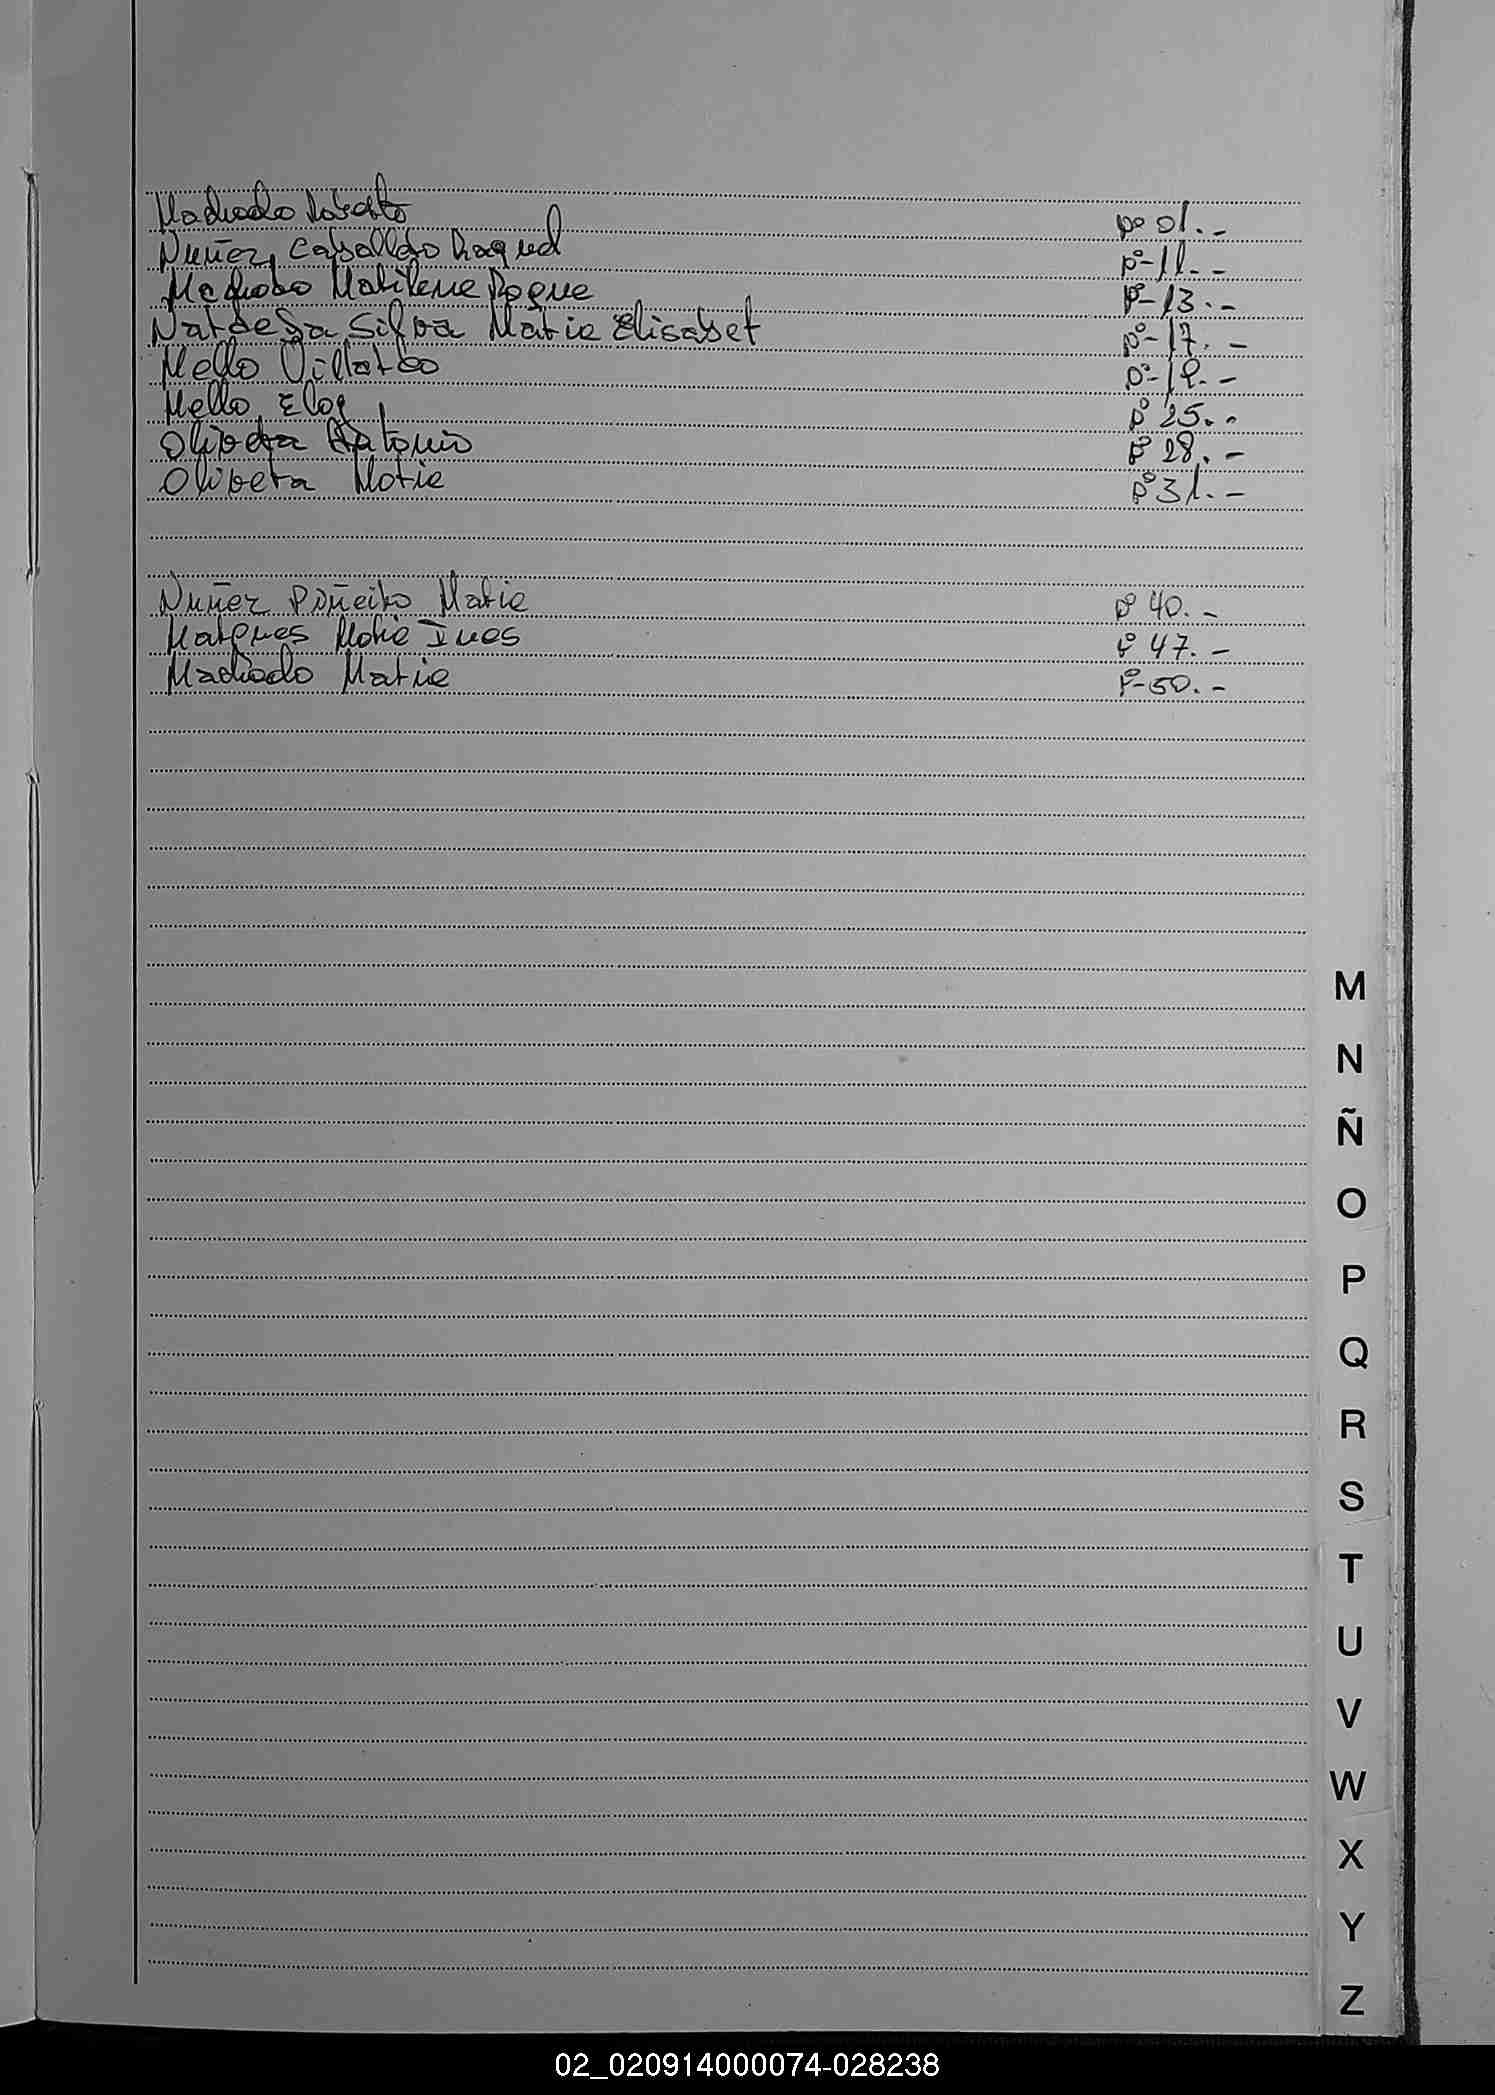 Machado Roberto pº 01.-
Nuñez Caballero Raquel pº-11.-
Machado Marilene Roque pº-13.-
Nardesa Silva Maria Elisabet pº-17.-
Mello Villardo pº-19.-
Mello Eloy pº 25.-
Olivera Antonio pº 28.-
Olivera Maria pº 31.-
Nuñez Piñeiro Maria pº 40.-
Marques Maria Ines pº 47.-
Machado Maria pº-50.-
M
N
Ñ
O
P
Q
R
S
T
U
V
W
X
Y
Z
02_020914000074-028238